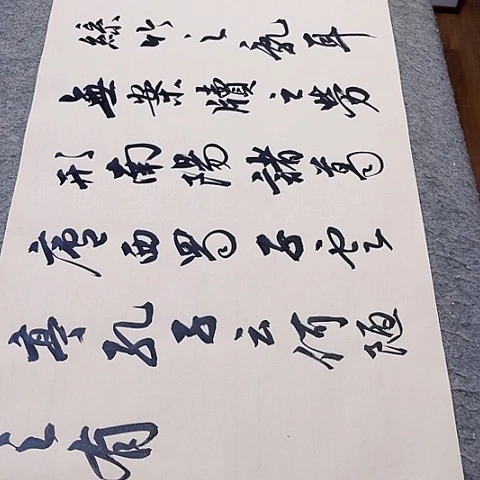 絲竹之亂耳
無案牘之勞
形南陽諸葛
廬西蜀子雲
亭孔子云何陋
之有